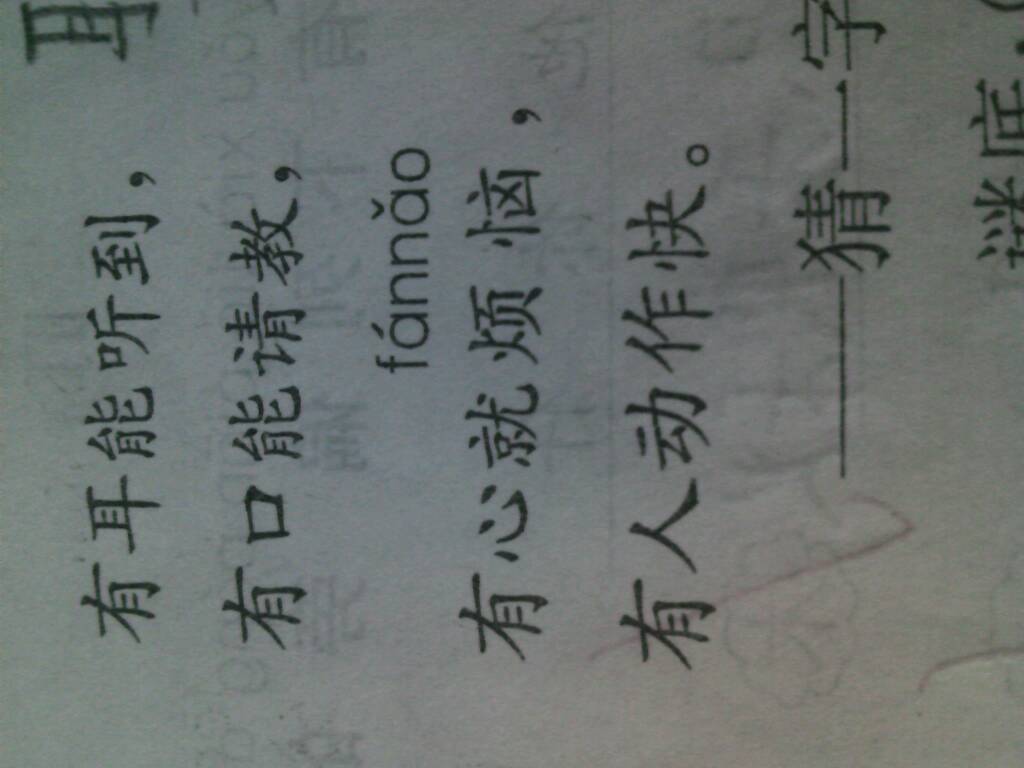 有耳能听到，
有口能请教，
fánnǎo
有心就烦恼，
有人动作快。
——猜一字
谜底